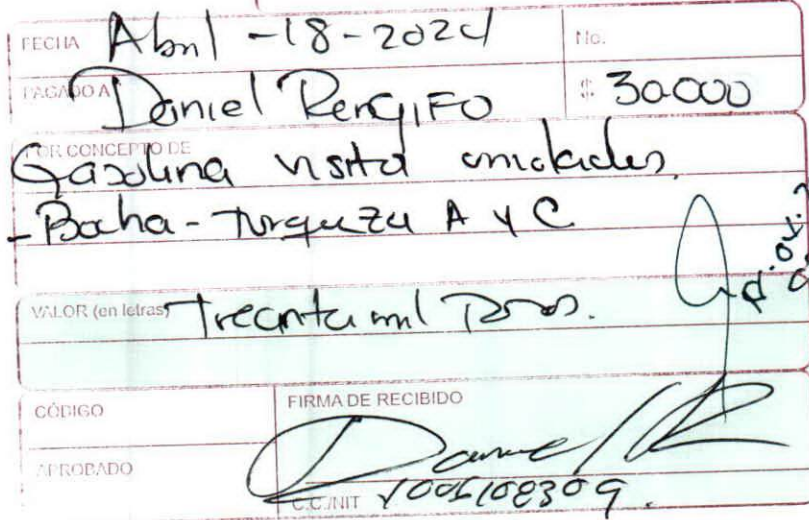 FECHA Abril - 18 - 2024 No.
PAGADO A Daniel Rengifo $ 30.000
POR CONCEPTO DE
Gasolina visita unidades.
- Bacha - Turqueza A y C
VALOR (en letras) Treinta mil Pesos.
CÓDIGO FIRMA DE RECIBIDO
APROBADO
C.C./NIT